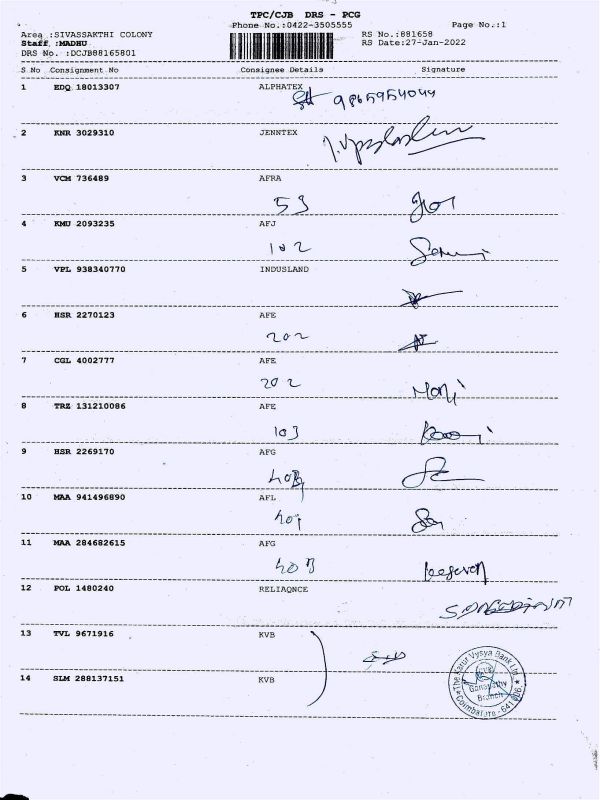 TPC/CJB DRS - PCG
Phone No.:0422-3505555
Page No.:1
Area :SIVASSAKTHI COLONY
RS No.:881658
Staff :MADHU
RS Date:27-Jan-2022
DRS No. :DCJB88165801
S No Consignment No Consignee Details Signature
1 EDQ 18013307 ALPHATEX
9865954044
2 KNR 3029310 JENNTEX
3 VCM 736489 AFRA
53
4 KMU 2093235 AFJ
102
5 VPL 938340770 INDUSLAND
6 HSR 2270123 AFE
202
7 CGL 4002777 AFE
202
8 TRZ 131210086 AFE
103
9 HSR 2269170 AFG
10 MAA 941496890 AFL
401
11 MAA 284682615 AFG
403
12 POL 1480240 RELIAQNCE
13 TVL 9671916 KVB
14 SLM 288137151 KVB
The Karur Vysya Bank Ltd.
Ganapathy
Branch
Coimbatore - 641 006